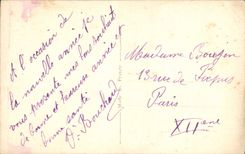 A l'occasion de
la nouvelle année je
vous présente mes bons souhaits
de bonne et heureuse année et
bonne santé
Bouchard
Madame
13 rue de Picpus
Paris
XII eme